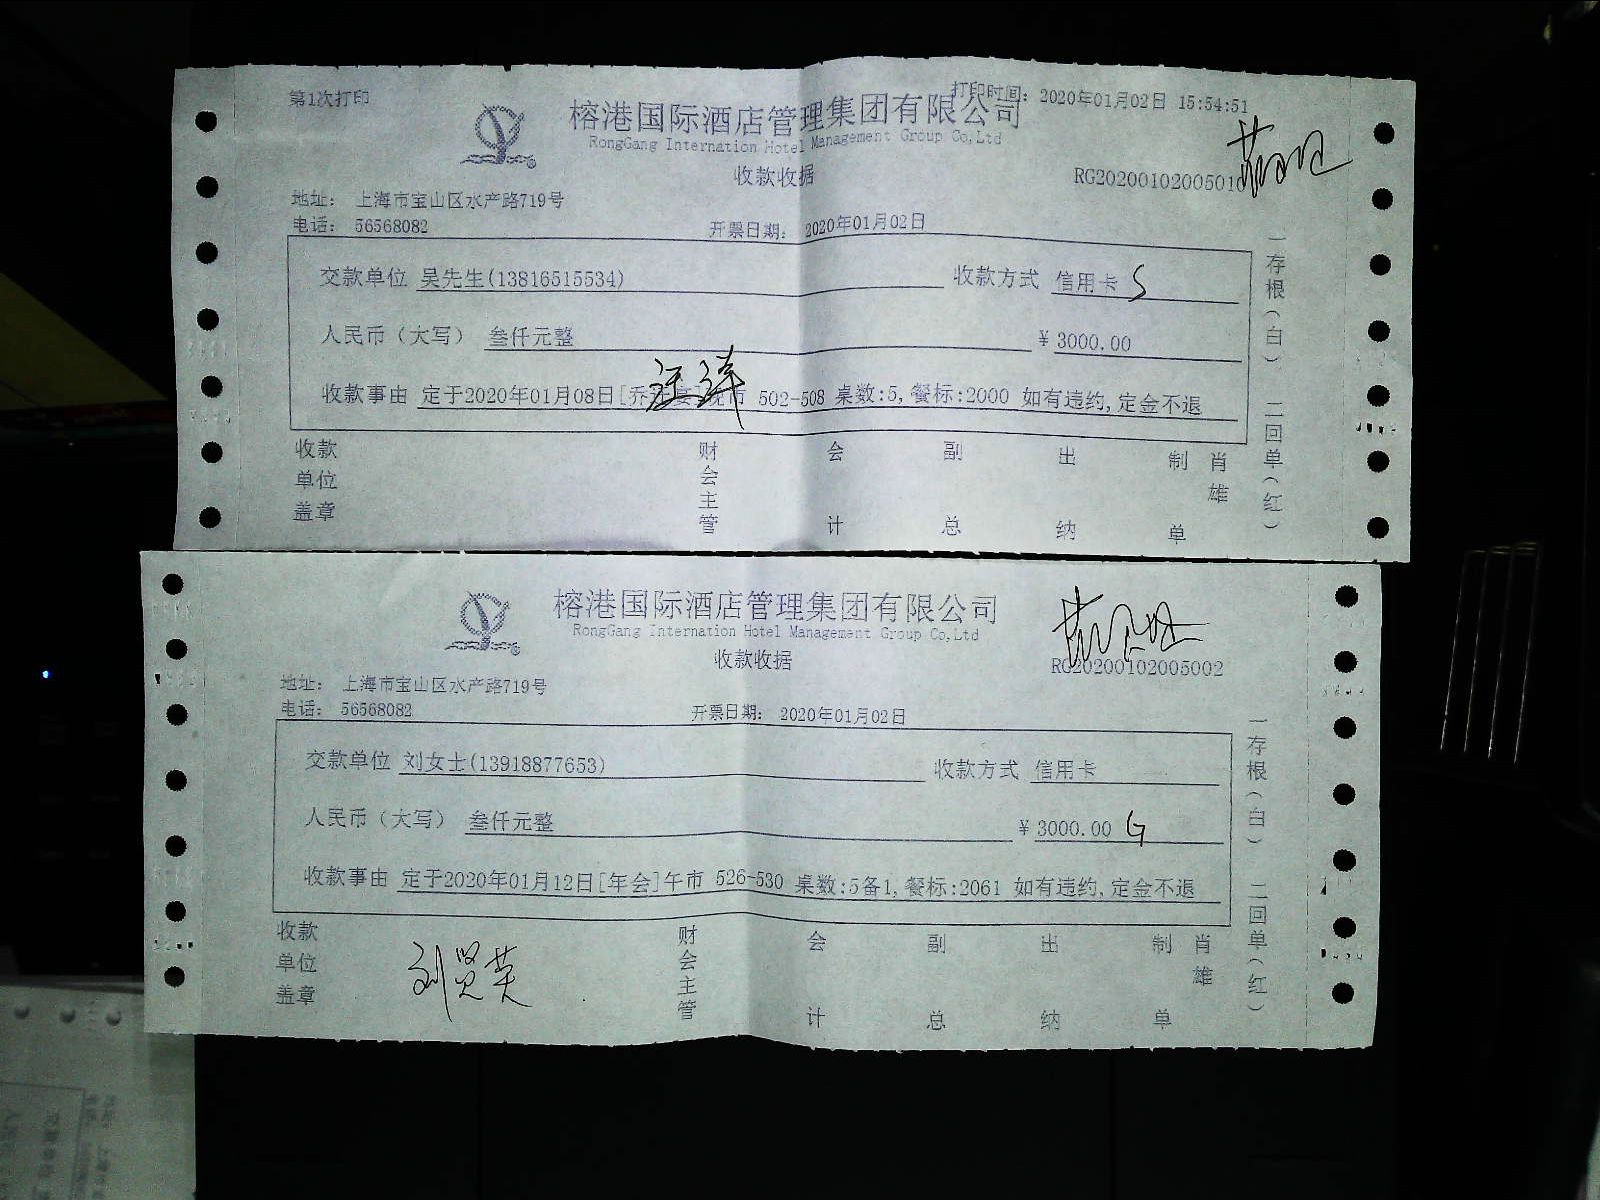 第1次打印
打印时间: 2020年01月02日 15:54:51
榕港国际酒店管理集团有限公司
RongGang Internation Hotel Management Group Co,Ltd
收款收据
RG2020010200501
地址: 上海市宝山区水产路719号
电话: 56568082
开票日期: 2020年01月02日
交款单位 吴先生(13816515534) 收款方式 信用卡 S
人民币（大写） 叁仟元整 ¥ 3000.00
收款事由 定于2020年01月08日[乔迁宴]晚市 502-508 桌数:5,餐标:2000 如有违约,定金不退
收款单位盖章 财会主管 会计 副总 出纳 制单 肖雄
一存根（白） 二回单（红）
榕港国际酒店管理集团有限公司
RongGang Internation Hotel Management Group Co,Ltd
收款收据
RG20200102005002
地址: 上海市宝山区水产路719号
电话: 56568082
开票日期: 2020年01月02日
交款单位 刘女士(13918877653) 收款方式 信用卡
人民币（大写） 叁仟元整 ¥ 3000.00 G
收款事由 定于2020年01月12日[年会]午市 526-530 桌数:5备1,餐标:2061 如有违约,定金不退
收款单位盖章 刘贤英 财会主管 会计 副总 出纳 制单 肖雄
一存根（白） 二回单（红）